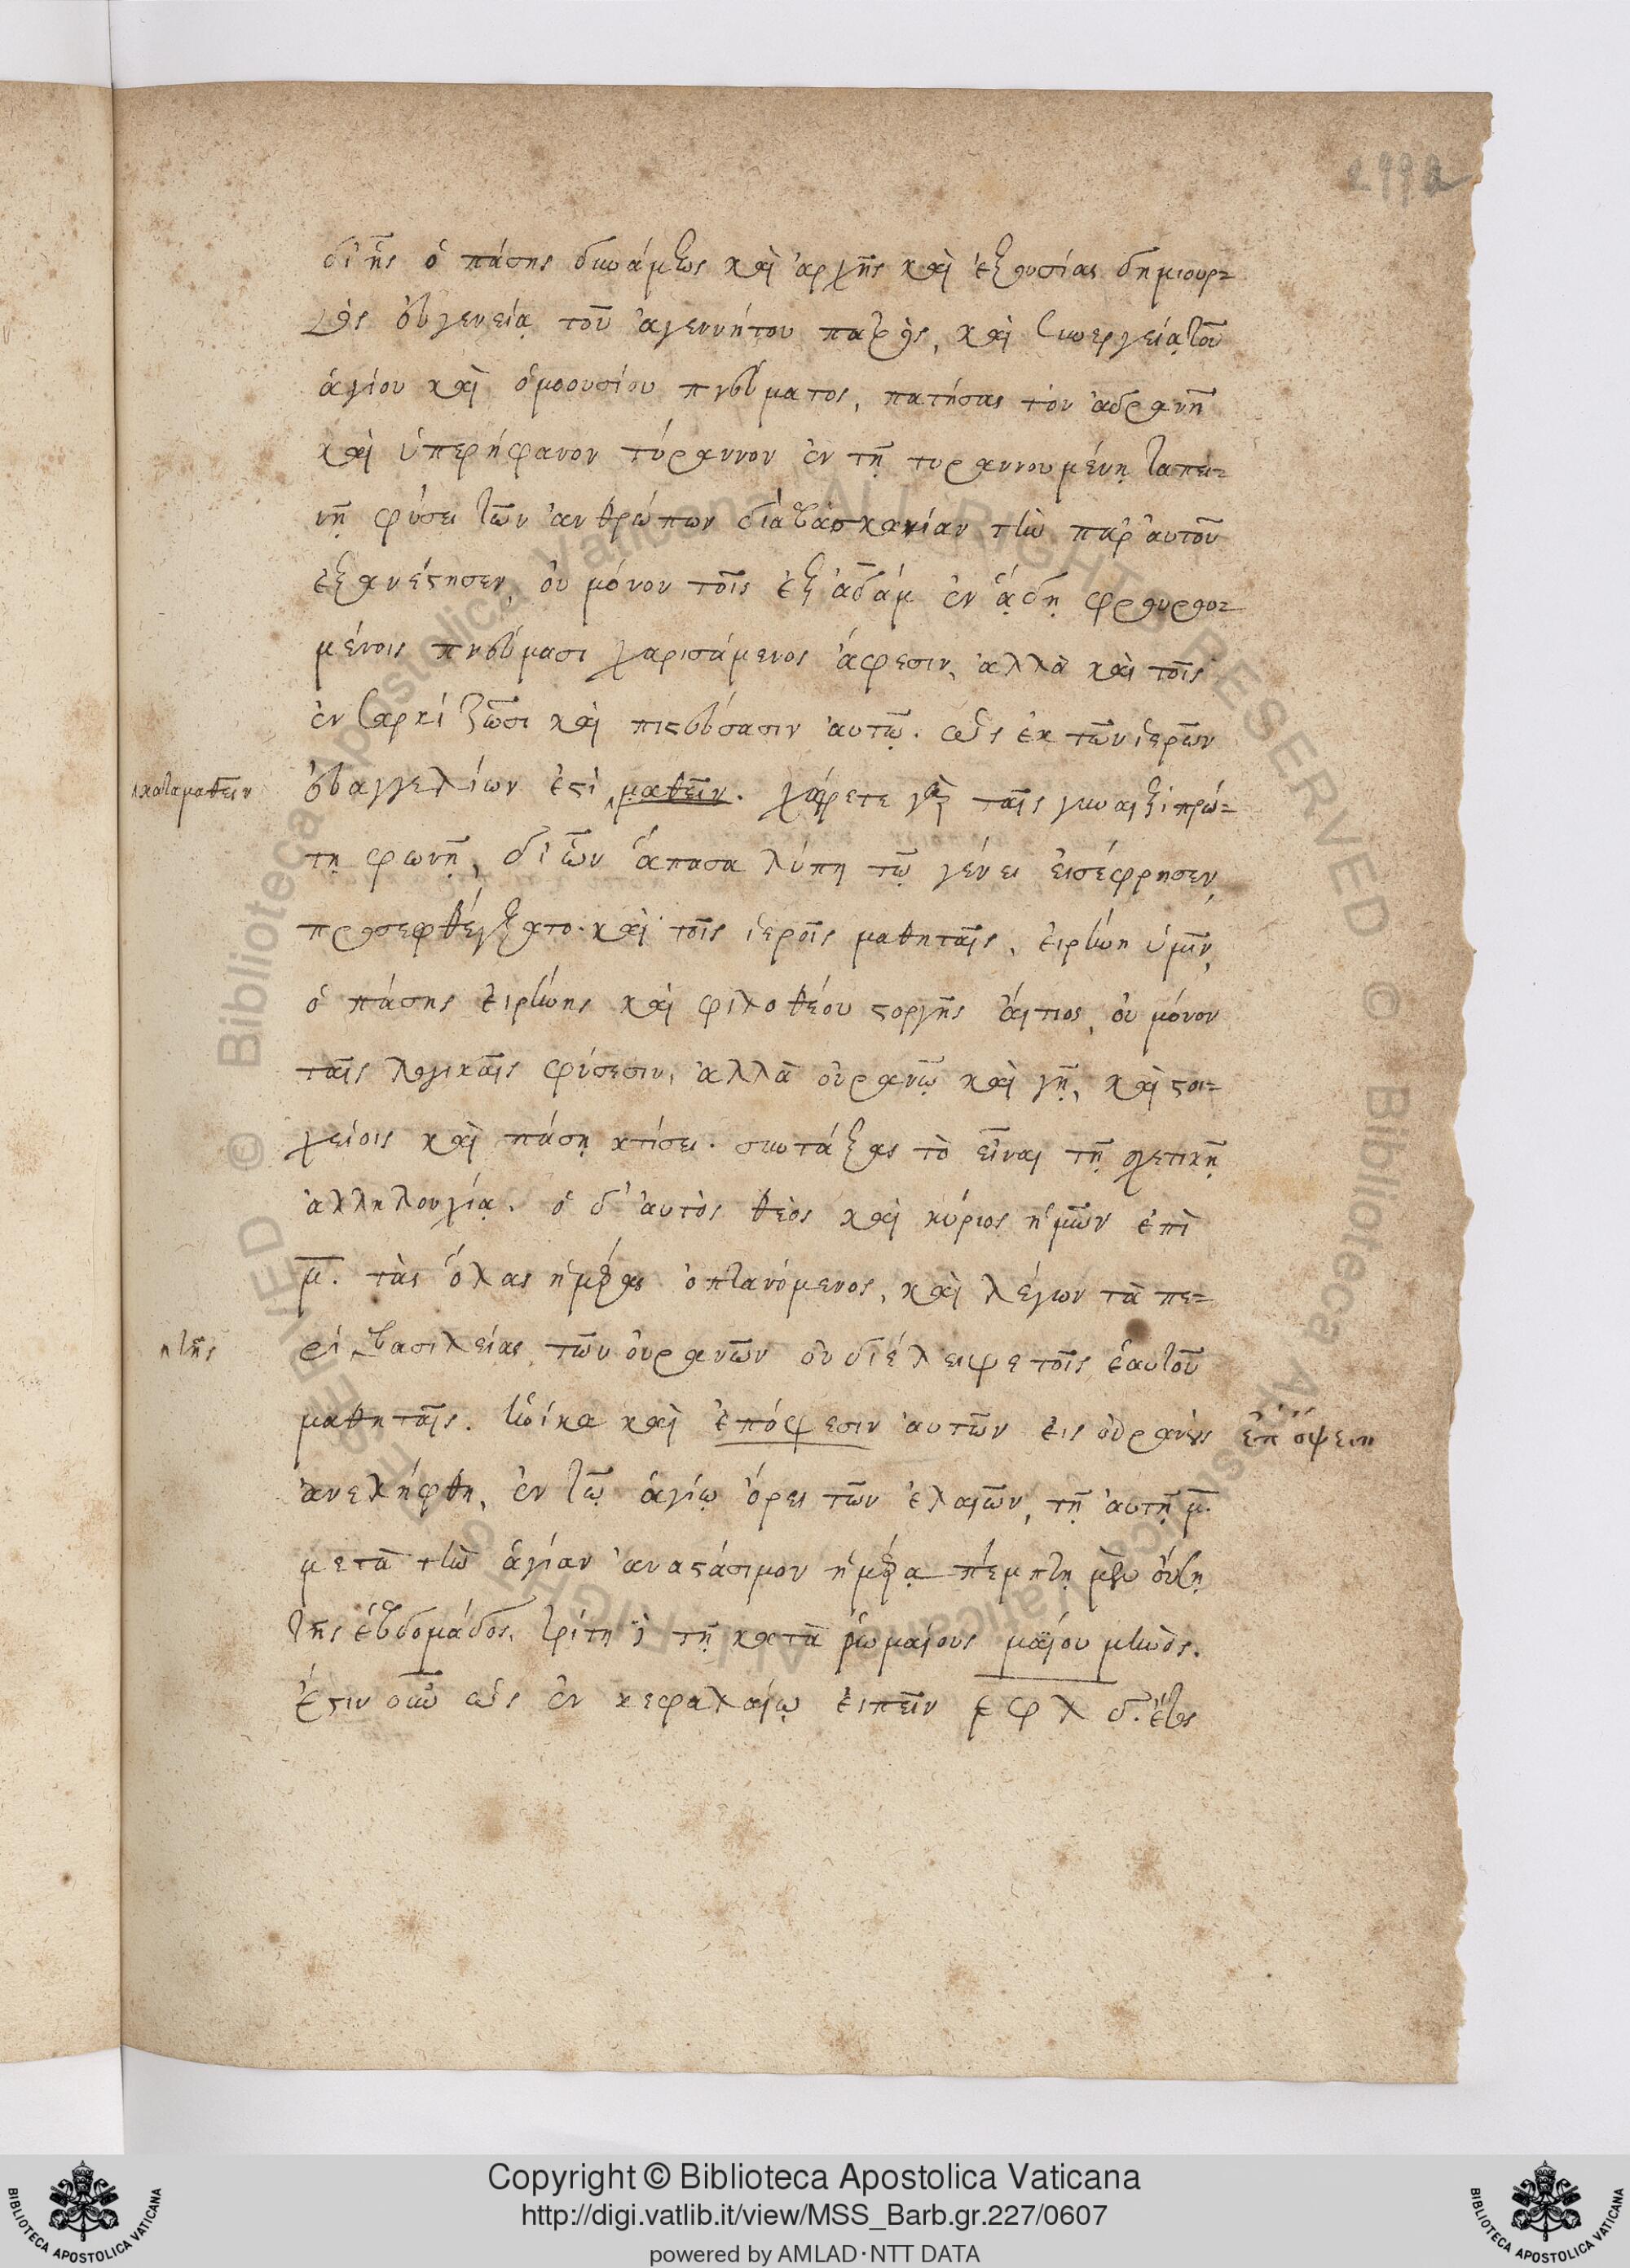 299a
δι' ἧς ὁ πάσης δυνάμεως καὶ ἀρχῆς καὶ ἐξουσίας δημιουρ=
γὸς εὐγενείᾳ τοῦ ἀγεννήτου πατρὸς, καὶ συνεργείᾳ τοῦ
ἁγίου καὶ ὁμοουσίου πνεύματος, πατήσας τὸν ἀδρανῆ
καὶ ὑπερήφανον τύραννον ἐν τῇ τυραννουμένῃ ταπει=
νῇ φύσει τῶν ἀνθρώπων διὰ βασκανίαν τὴν παρ' αὐτοῦ
ἐξανέστησεν, οὐ μόνον τοῖς ἐξ ἀδὰμ ἐν ᾅδῃ φρουρου=
μένοις πνεύμασι χαρισάμενος ἄφεσιν, ἀλλὰ καὶ τοῖς
ἐν σαρκί ζῶσι καὶ πιστεύσασιν αὐτῷ. ὡς ἐκ τῶν ἱερῶν
καταμαθεῖν
εὐαγγελίων ἐστὶ μαθεῖν. χαίρετε γὰρ ταῖς γυναιξὶ πρώ=
τῃ φωνῇ, δι' ὧν ἅπασα λύπη τῷ γένει εἰσέφρησεν,
προσεφθέγξατο. καὶ τοῖς ἱεροῖς μαθηταῖς, εἰρήνη ὑμῖν,
ὁ πάσης εἰρήνης καὶ φιλοθέου στοργῆς αἴτιος, οὐ μόνον
ταῖς λογικαῖς φύσεσιν, ἀλλὰ οὐρανῷ καὶ γῇ, καὶ στοι=
χείοις καὶ πάσῃ κτίσει. συντάξας τὸ εἶναι τῇ σχετικῇ
ἀλληλουχίᾳ. ὁ δ' αὐτὸς θεὸς καὶ κύριος ἡμῶν ἐπὶ
μ. τὰς ὅλας ἡμέρας ὀπτανόμενος, καὶ λέγων τὰ πε=
τῆς
ρὶ βασιλείας τῶν οὐρανῶν οὐ διέλειψε τοῖς ἑαυτοῦ
μαθηταῖς. ἡνίκα καὶ ἐπόψεσιν αὐτῶν εἰς οὐρανοὺς
ἐπ' ὄψεσιν
ἀνελήφθη, ἐν τῷ ἁγίῳ ὄρει τῶν ἐλαιῶν, τῇ αὐτῇ μ.
μετὰ τὴν ἁγίαν ἀναστάσιμον ἡμέρᾳ πέμπτῃ μὲν οὔσῃ
τῆς ἑβδομάδος, τρίτῃ δὲ τῇ κατὰ ῥωμαίους μαΐου μηνὸς.
ἔστιν οὖν ὡς ἐν κεφαλαίῳ εἰπεῖν ͵εφλδ. ἔτος
Copyright © Biblioteca Apostolica Vaticana
http://digi.vatlib.it/view/MSS_Barb.gr.227/0607
powered by AMLAD·NTT DATA
BIBLIOTECA APOSTOLICA VATICANA
BIBLIOTECA APOSTOLICA VATICANA